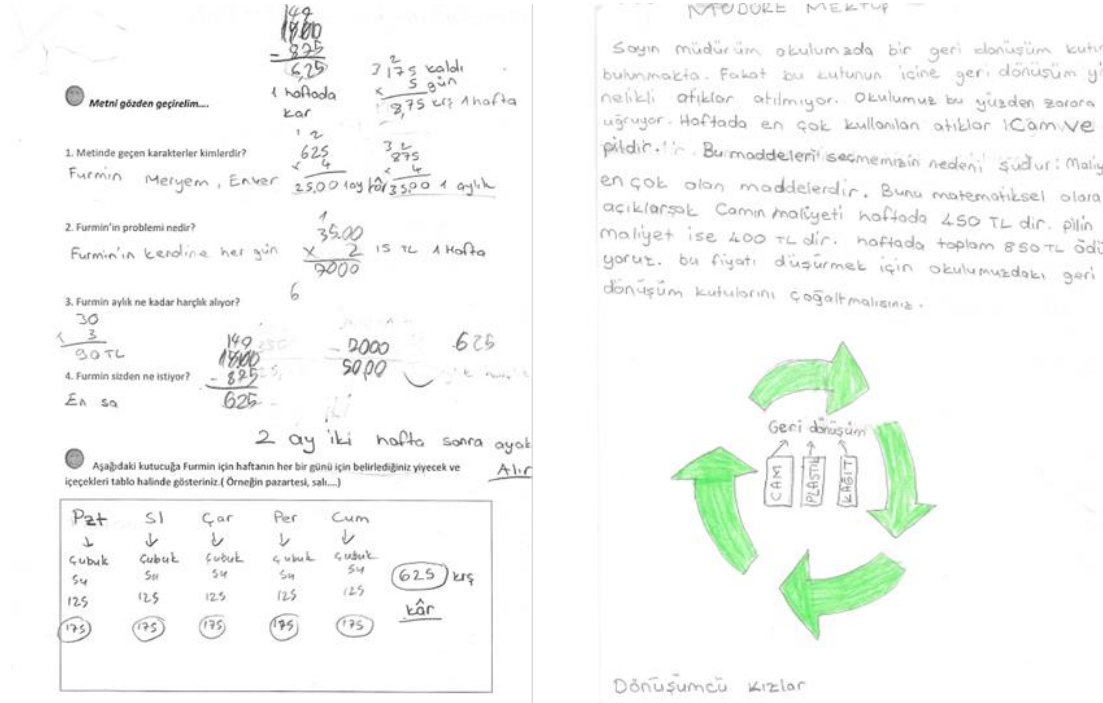 149
1500
- 875
6,25
1 haftada
kar
3,175 kaldı
x 5 gün
8,75 krş 1 hafta
Metni gözden geçirelim....
1. Metinde geçen karakterler kimlerdir?
Furmin Meryem, Enver
625
x 4
25,00 1 ay kâr
875
x 4
35,00 1 aylık
2. Furmin'in problemi nedir?
Furmin'in kendine her gün
35.00
x 2
7000
15 TL 1 Hafta
6
3. Furmin aylık ne kadar harçlık alıyor?
30
x 3
90 TL
4. Furmin sizden ne istiyor?
En sa
- 875
625
- 2000
5000
625
2 ay iki hafta sonra ayak
Alır
Aşağıdaki kutucuğa Furmin için haftanın her bir günü için belirlediğiniz yiyecek ve
içeçekleri tablo halinde gösteriniz.( Örneğin pazartesi, salı....)
Pzt Sl Çar Per Cum
Çubuk Çubuk Çubuk Çubuk Çubuk
Su Su Su Su Su
125 125 125 125 125
175 175 175 175 175
625 krş
kâr
MÜDÜRE MEKTUP
Sayın müdürüm okulumzda bir geri dönüşüm kutu
bulunmakta. Fakat bu kutunun içine geri dönüşüm
nelikli atıklar atılmıyor. Okulumuz bu yüzden zarara
uğruyor. Haftada en çok kullanılan atıklar Cam ve
pildir. Bu maddeleri seçmemizin nedeni şudur: Maliy
en çok olan maddelerdir. Bunu matematiksel olara
açıklarsak Camın maliyeti haftada 450 TL dir. pilin
maliyet ise 400 TL dir. haftada toplam 850 TL ödü
yoruz. bu fiyatı düşürmek için okulumuzdaki geri
dönüşüm kutularını çoğaltmalısınız.
Geri dönüşüm
CAM
PLASTİK
KAĞIT
Dönüşümcü Kızlar